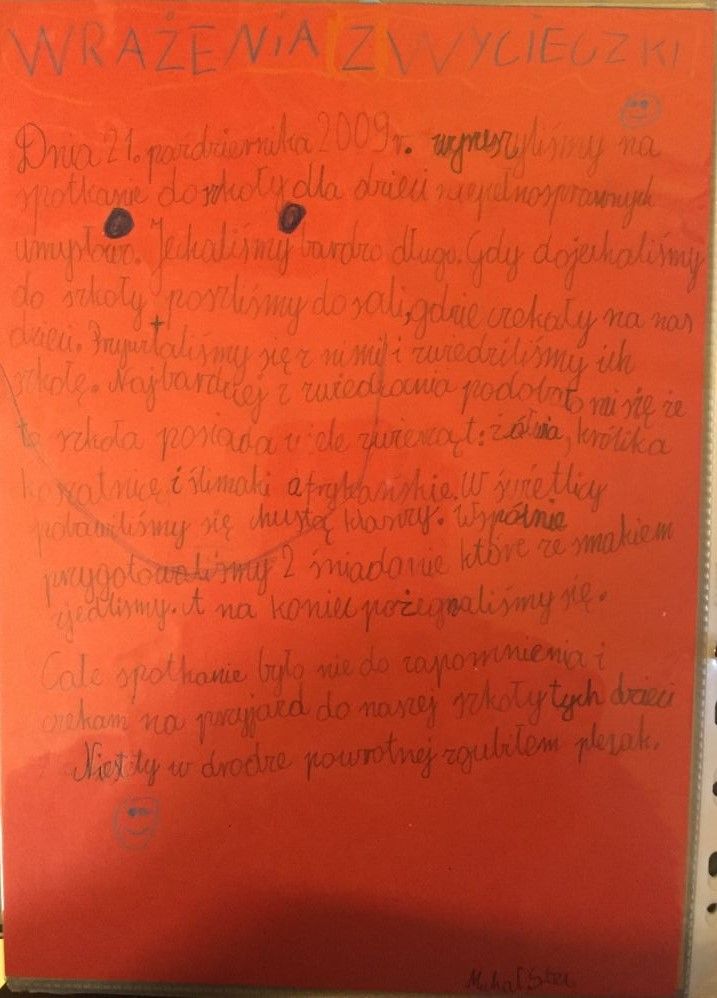 WRAŻENIA Z WYCIECZKI
Dnia 21. pazdziernika 2009r. wyruszyliśmy na
spotkanie do szkoły dla dzieci niepełnosprawnych
umysłowo. Jechaliśmy bardzo długo. Gdy dojechaliśmy
do szkoły poszliśmy do sali, gdzie czekały na nas
dzieci. Przywitaliśmy się z nimi i zwiedziliśmy ich
szkołę. Najbardziej z zwiedzania podobało mi się że
ta szkoła posiada wiele zwierząt: żółwia, królika
koszatnicę i ślimaki afrykańskie. W świetlicy
pobawiliśmy się chustą klanzy. Wspólnie
przygotowaliśmy 2 śniadanie które ze smakiem
zjedliśmy. A na koniec pożegnaliśmy się.
Całe spotkanie było nie do zapomnienia i
czekam na przyjazd do naszej szkoły tych dzieci
Niestety w drodze powrotnej zgubiłem plecak.
Michał